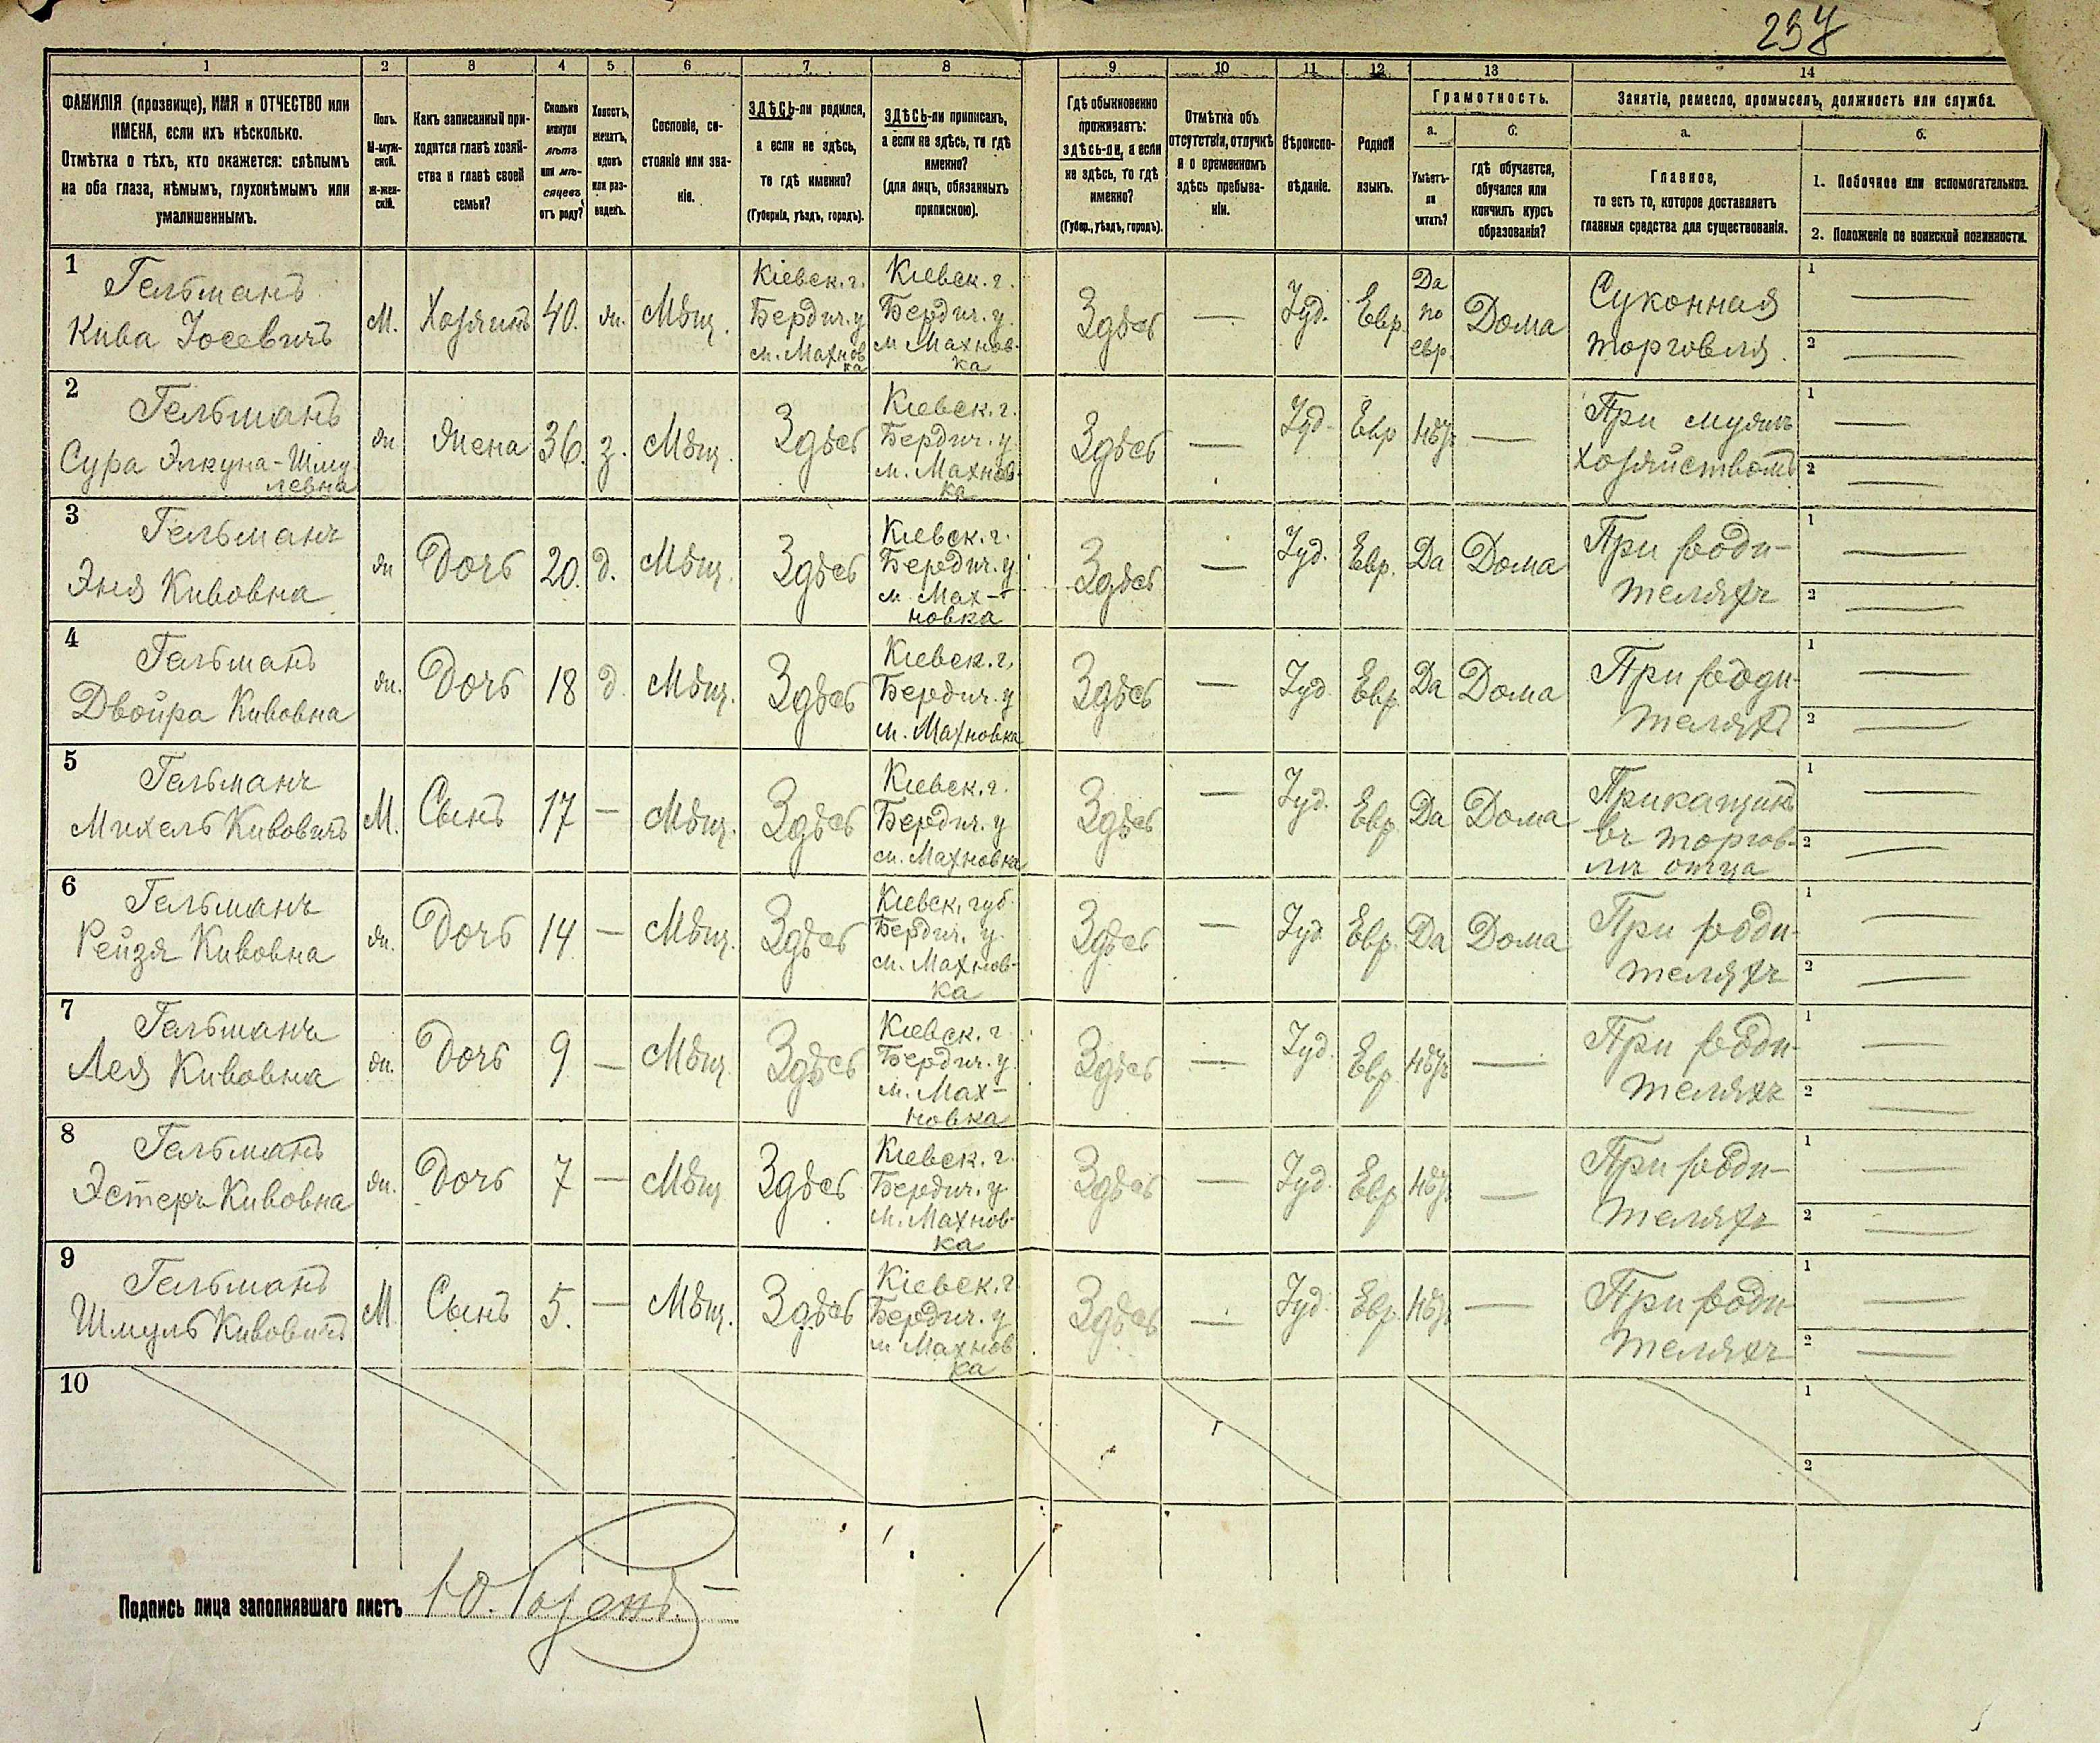 237
1 2 3 4 5 6 7 8 9 10 11 12 13 14
ФАМИЛІЯ (прозвище), ИМЯ и ОТЧЕСТВО или
ИМЕНА, если ихъ нѣсколько.
Отмѣтка о тѣхъ, кто окажется: слѣпымъ
на оба глаза, нѣмымъ, глухонѣмымъ или
умалишеннымъ.
Полъ.
М-муж-
ской.
Ж-жен-
скій.
Какъ записанный при-
ходится главѣ хозяй-
ства и главѣ своей
семьи?
Сколько
минуло
лѣтъ
или мѣ-
сяцевъ
отъ роду?
Холостъ,
женатъ,
вдовъ
или раз-
веденъ.
Сословіе, со-
стояніе или зва-
ніе.
ЗДѢСЬ-ли родился,
а если не здѣсь,
то гдѣ именно?
(Губернія, уѣздъ, городъ).
ЗДѢСЬ-ли приписанъ,
а если не здѣсь, то гдѣ
именно?
(для лицъ, обязанныхъ
припискою).
Гдѣ обыкновенно
проживаетъ:
здѣсь-ли, а если
не здѣсь, то гдѣ
именно?
(Губер., уѣздъ, городъ).
Отмѣтка объ
отсутствіи, отлучкѣ
и о временномъ
здѣсь пребыва-
ніи.
Вѣроиспо-
вѣданіе.
Родной
языкъ.
Грамотность.
а.
Умѣетъ-
ли
читать?
б.
гдѣ обучается,
обучался или
кончилъ курсъ
образованія?
Занятіе, ремесло, промыселъ, должность или служба.
а.
Главное,
то есть то, которое доставляетъ
главныя средства для существованія.
б.
1. Побочное или вспомогательное.
2. Положеніе по воинской повинности.
1
Гельманъ
Кива Іосевичъ
М.
Хозяинъ
40.
ж.
Мѣщ.
Кіевск. г.
Бердич. у
м. Махнов
ка
Кіевск. г.
Бердич. у.
м Махнов-
ка
Здѣсь
—
Іуд.
Евр.
Да
по
евр.
Дома
Суконная
торговля.
1 —
2 —
2
Гельманъ
Сура Элкуна-Шму
левна
ж
Жена
36.
з.
Мѣщ.
Здѣсь
Кіевск. г.
Бердич. у
м. Махнов
ка
Здѣсь
—
Іуд.
Евр
Нѣтъ
—
При мужѣ
хозяйствомъ
1 —
2 —
3
Гельманъ
Эня Кивовна
ж
Дочь
20.
д.
Мѣщ.
Здѣсь
Кіевск. г.
Бердич. у
м Мах-
новка
Здѣсь
—
Іуд.
Евр.
Да
Дома
При роди-
теляхъ
1 —
2 —
4
Гельманъ
Двойра Кивовна
ж.
Дочь
18
д.
Мѣщ.
Здѣсь
Кіевск. г.
Бердич. у
м. Махновка
Здѣсь
—
Іуд
Евр
Да
Дома
При роди-
теляхъ
1 —
2 —
5
Гельманъ
Михель Кивовичъ
М.
Сынъ
17
—
Мѣщ.
Здѣсь
Кіевск. г.
Бердич. у
м. Махновка
Здѣсь
—
Іуд.
Евр
Да
Дома
Прикащикъ
въ торгов-
лѣ отца
1 —
2 —
6
Гельманъ
Рейзя Кивовна
ж.
Дочь
14
—
Мѣщ.
Здѣсь
Кіевск. губ.
Бердич. у.
м. Махнов-
ка
Здѣсь
—
Іуд
Евр.
Да
Дома
При роди-
теляхъ
1 —
2 —
7
Гельманъ
Лея Кивовна
ж.
Дочь
9
—
Мѣщ.
Здѣсь
Кіевск. г.
Бердич. у.
м. Мах-
новка
Здѣсь
—
Іуд.
Евр
Нѣтъ
—
При роди-
теляхъ
1 —
2 —
8
Гельманъ
Эстеръ Кивовна
ж.
Дочь
7
—
Мѣщ
Здѣсь
Кіевск. г.
Бердич. у.
м. Махнов-
ка
Здѣсь
—
Іуд.
Евр
Нѣтъ
—
При роди-
теляхъ
1 —
2 —
9
Гельманъ
Шмуль Кивовичъ
М
Сынъ
5.
—
Мѣщ.
Здѣсь
Кіевск. г.
Бердич. у
м Махнов
ка
Здѣсь
—
Іуд.
Евр.
Нѣтъ
—
При роди
теляхъ
1 —
2 —
10
1
2
Подпись лица заполнявшаго листъ